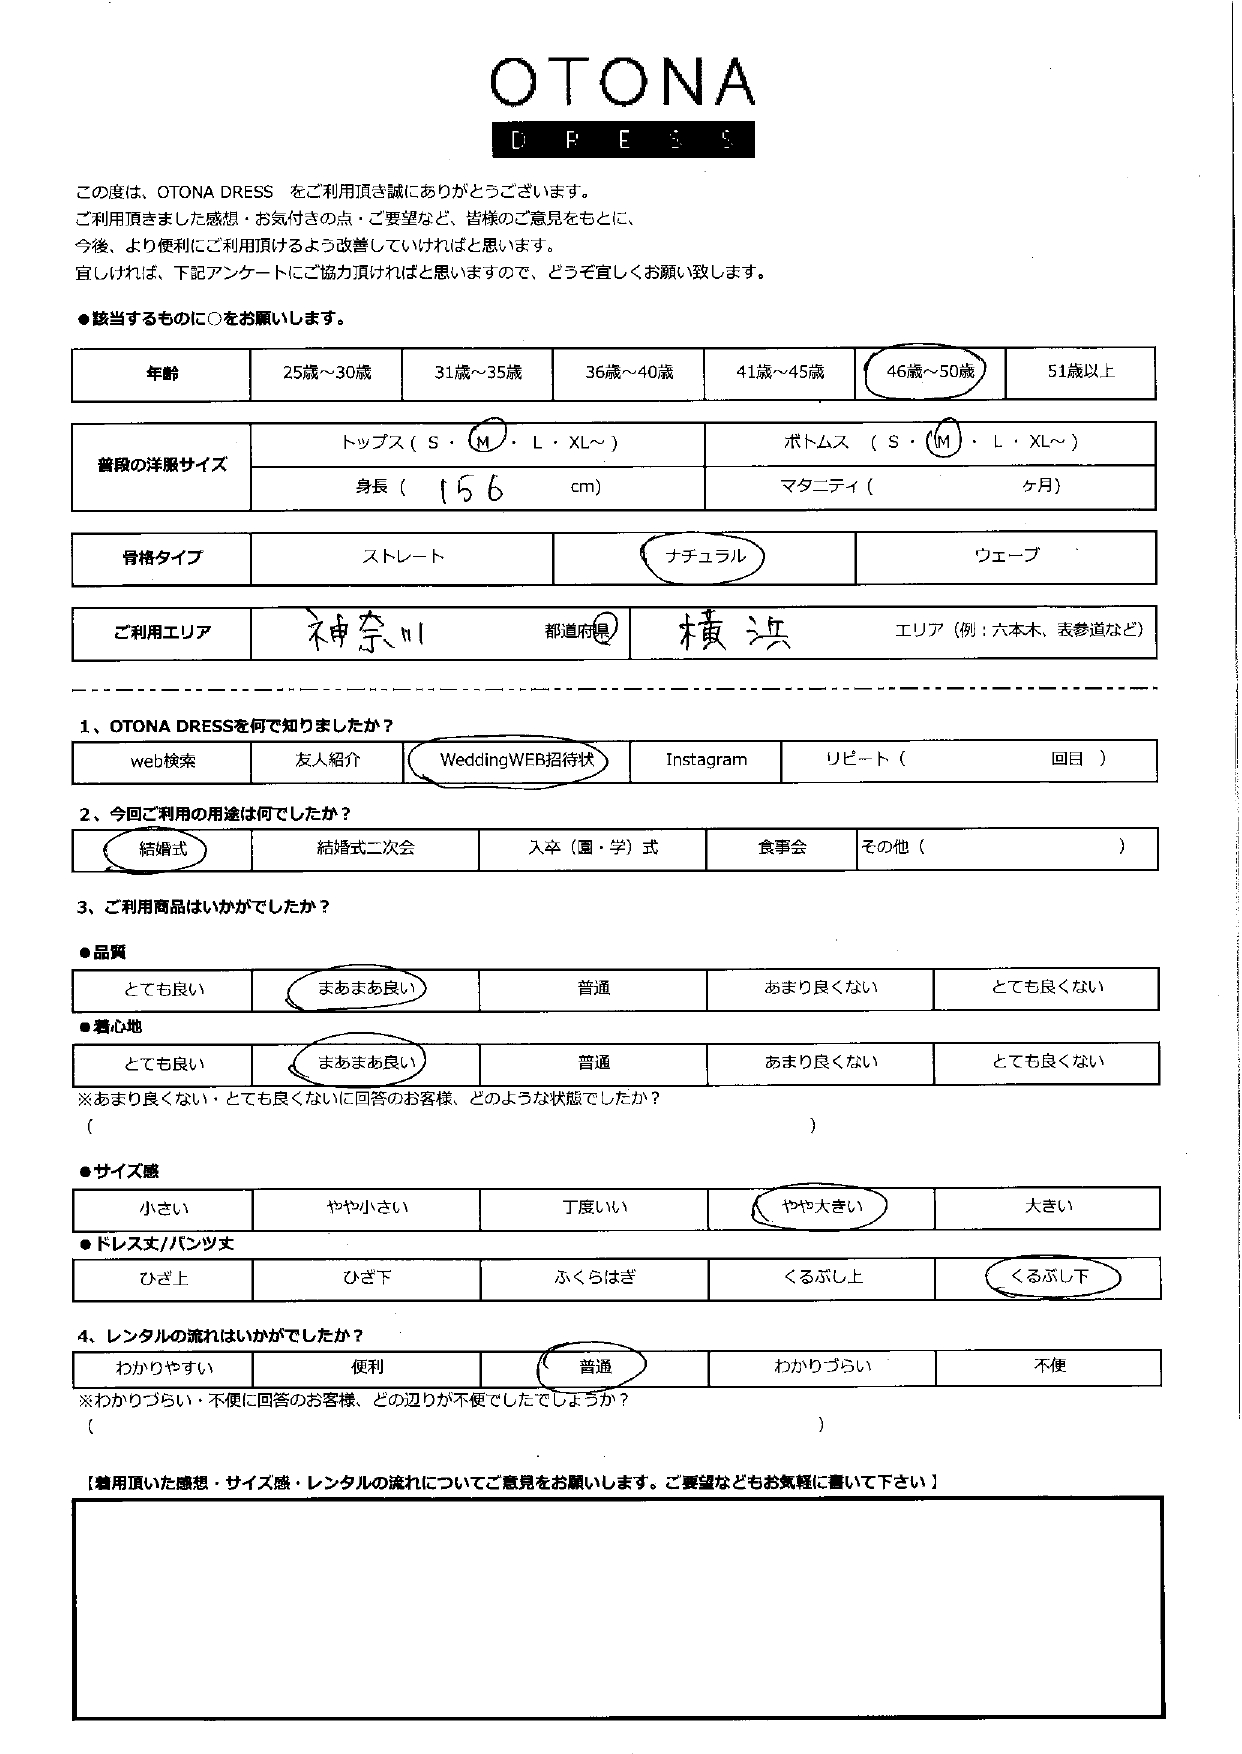 OTONA
DRESS
この度は、OTONA DRESS　をご利用頂き誠にありがとうございます。
ご利用頂きました感想・お気付きの点・ご要望など、皆様のご意見をもとに、
今後、より便利にご利用頂けるよう改善していければと思います。
宜しければ、下記アンケートにご協力頂ければと思いますので、どうぞ宜しくお願い致します。
●該当するものに○をお願いします。
年齢 25歳～30歳 31歳～35歳 36歳～40歳 41歳～45歳 46歳～50歳 51歳以上
普段の洋服サイズ トップス ( S ・ M ・ L ・ XL～ ) ボトムス ( S ・ M ・ L ・ XL～ )
身長 ( 156 cm) マタニティ ( ヶ月)
骨格タイプ ストレート ナチュラル ウェーブ
ご利用エリア 神奈川 都道府県 横浜 エリア（例：六本木、表参道など）
1、OTONA DRESSを何で知りましたか？
web検索 友人紹介 WeddingWEB招待状 Instagram リピート（ 回目 ）
2、今回ご利用の用途は何でしたか？
結婚式 結婚式二次会 入卒（園・学）式 食事会 その他（ ）
3、ご利用商品はいかがでしたか？
●品質
とても良い まあまあ良い 普通 あまり良くない とても良くない
●着心地
とても良い まあまあ良い 普通 あまり良くない とても良くない
※あまり良くない・とても良くないに回答のお客様、どのような状態でしたか？
( )
●サイズ感
小さい やや小さい 丁度いい やや大きい 大きい
●ドレス丈/パンツ丈
ひざ上 ひざ下 ふくらはぎ くるぶし上 くるぶし下
4、レンタルの流れはいかがでしたか？
わかりやすい 便利 普通 わかりづらい 不便
※わかりづらい・不便に回答のお客様、どの辺りが不便でしたでしょうか？
( )
【着用頂いた感想・サイズ感・レンタルの流れについてご意見をお願いします。ご要望などもお気軽に書いて下さい】